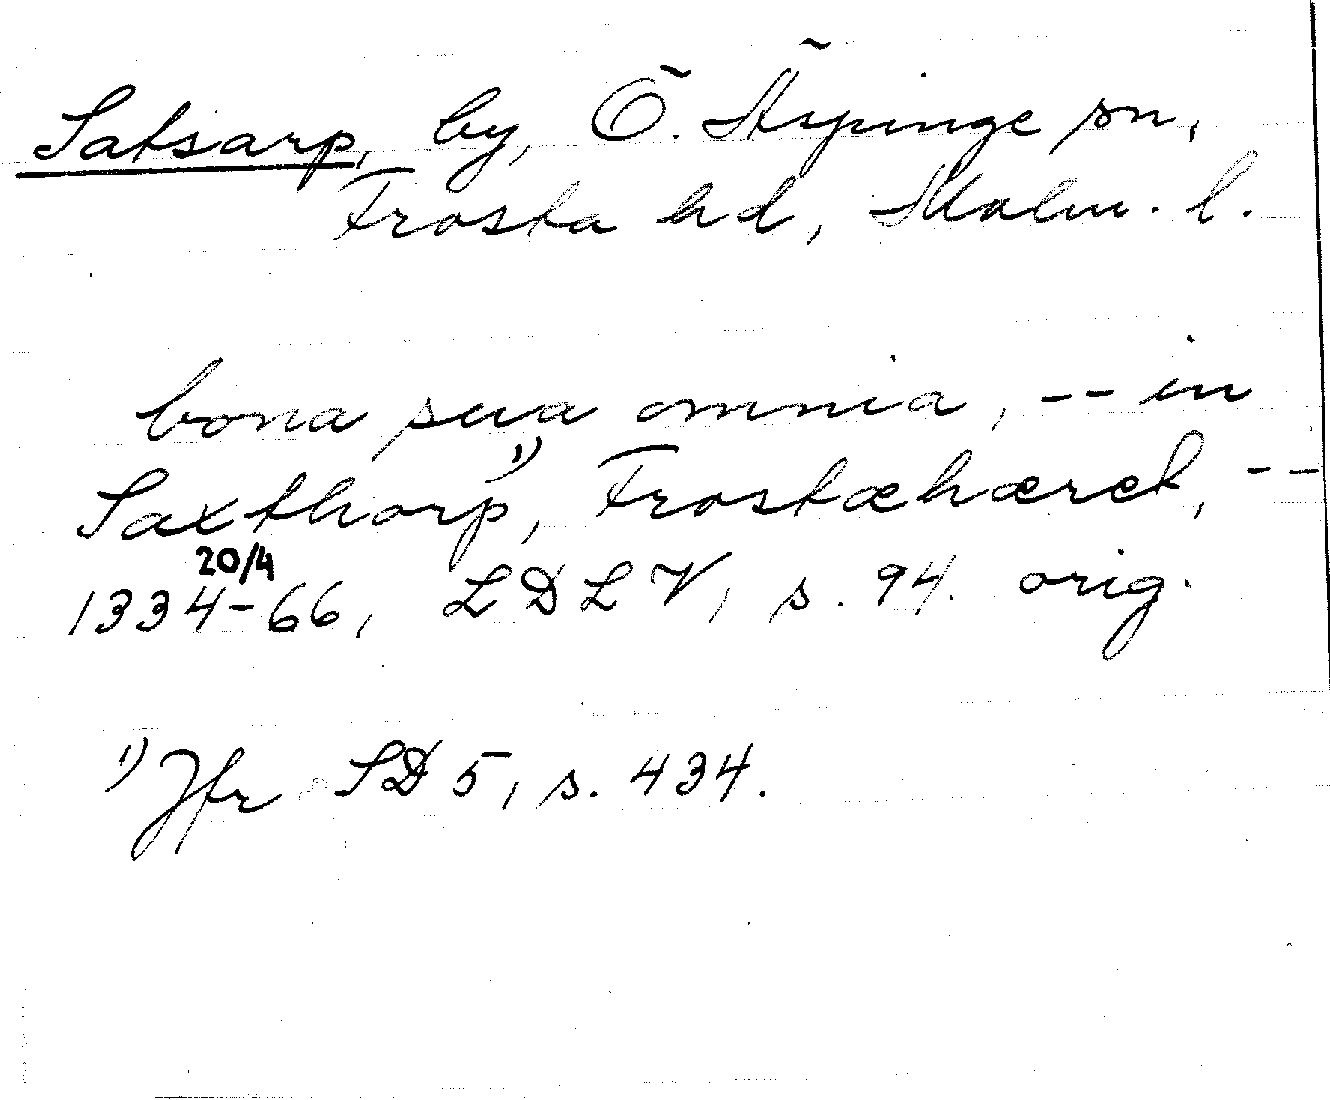 Satsarp, by, Ö. Äspinge sn,
Frosta hd, Malm. l.
bona sua omnia, -- in
Saxthorp¹⁾, Frostæhæret, --
20/4
1334-66, LDLV, s. 94. orig.
¹⁾ Jfr SD 5, s. 434.